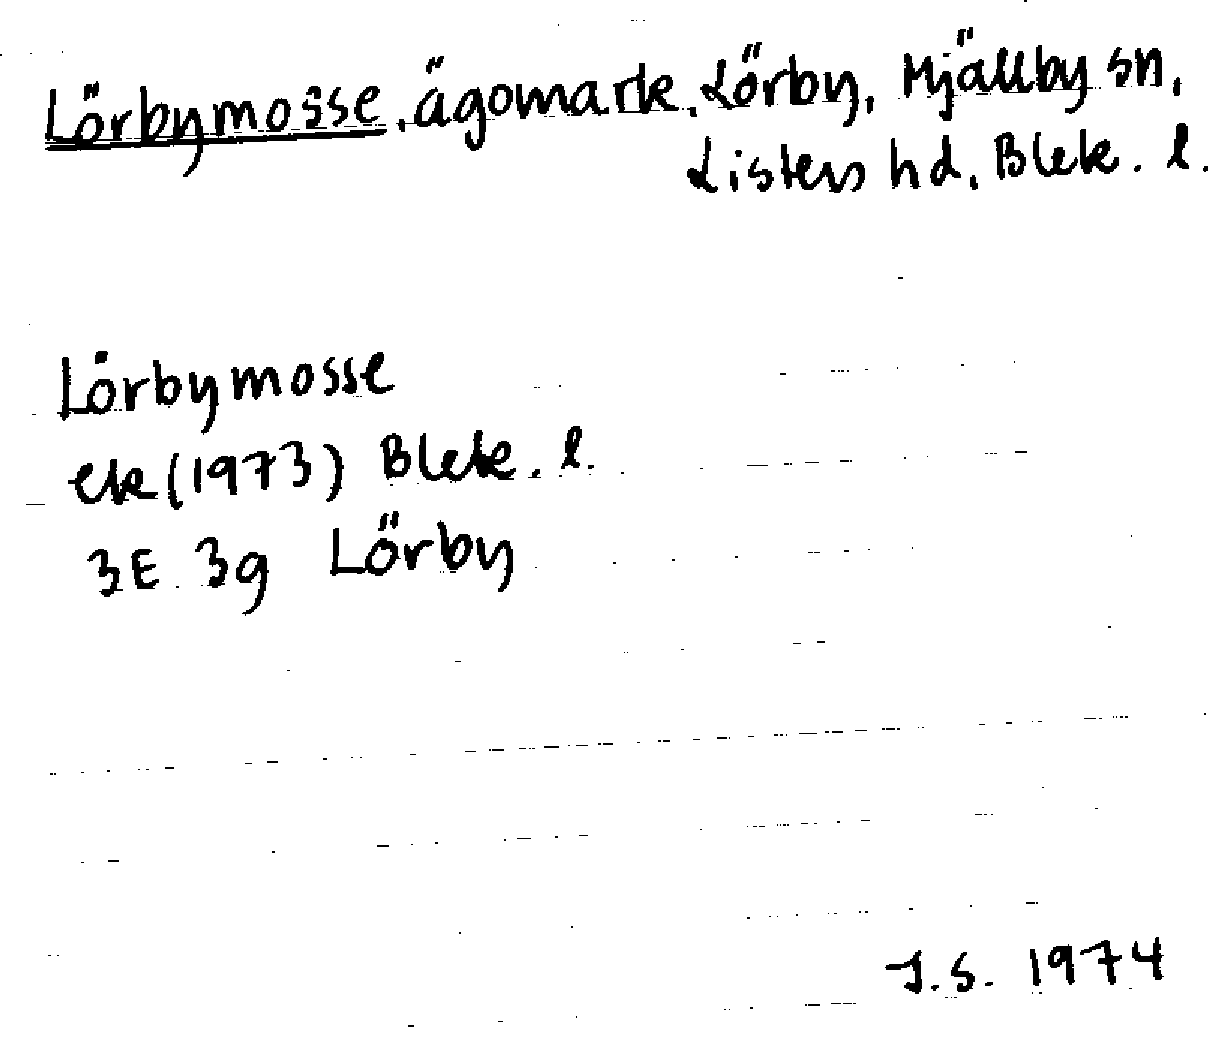 Lörbymosse, ägomark, Lörby, Mjällby sn,
Listers hd, Blek. l.
Lörbymosse
ek (1973) Blek. l.
3E 3g Lörby
J.S. 1974